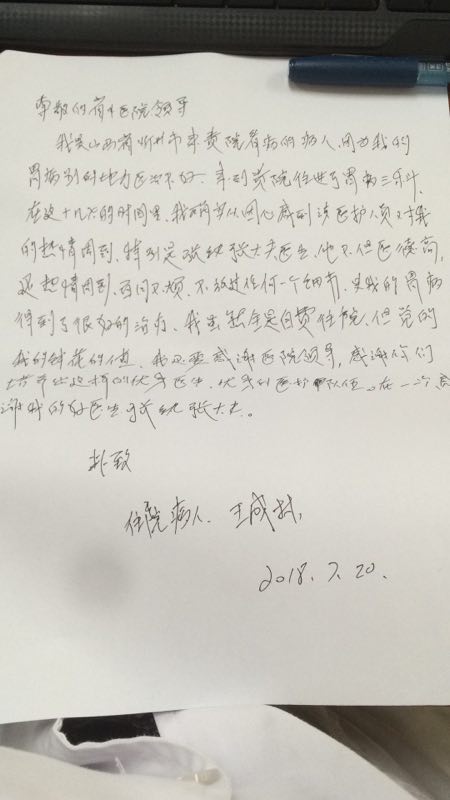 尊敬的省中医院领导
我是山西省忻州市来贵院看病的病人,因为我的
胃病别的地方医治不好,来到贵院住进了胃病三
在这十几天的时间里,我从内心感到该医护人员对我
的热情周到,特别是张大夫医生,他不但医德高,
还热情周到,百问不烦,不放过任何一个细节,使我的胃病
得到了很好的治疗,我虽然全是自费住院,但觉的
我的钱花的值,我还要感谢医院领导,感谢你们
培养出这样的优秀医生,优秀的医护队伍。在一次感
谢我的好医生张大夫。
此致
住院病人 王成
2018.7.20.